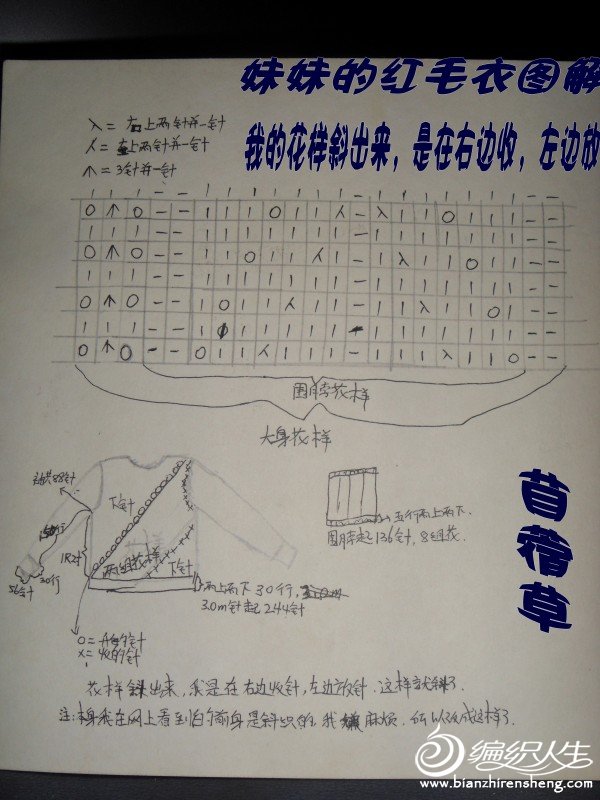 妹妹的红毛衣图解
我的花样斜出来，是在右边收，左边放
入= 右上两针并一针
人= 左上两针并一针
个= 3针并一针
| | | | | | | | | | | | | | | | | | | | - -
O ↑ O - - | | | O | | 人 - 入 | | O | | | - -
| | | - - | | | | | | | - | | | | | | | - -
O ↑ O - - | | O | | 人 | - | 入 | | O | | - -
| | | - - | | | | | | | - | | | | | | | - -
O ↑ O - - | O | | 人 | | - | | 入 | | O | - -
O ↑ O - - O | | 人 | | | - | | | 入 | | O - -
围脖花样
大身花样
苜蓿草
88针
下针
两组花样
下针
56针
30行
五行两上两下
围脖起136针，8组花。
两上两下30行，
3.0m针起244针
O=
X=收的针
花样斜出来，我是在右边收针，左边放针，这样就斜了.
注:本身我在网上看到的前身是斜织的，我嫌麻烦，所以改成这样了.
编织人生
www.bianzhirensheng.com